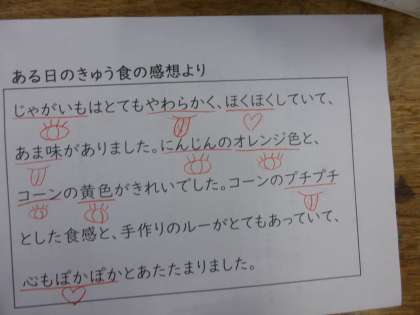 ある日のきゅう食の感想より
じゃがいもはとてもやわらかく、ほくほくしていて、
あま味がありました。にんじんのオレンジ色と、
コーンの黄色がきれいでした。コーンのプチプチ
とした食感と、手作りのルーがとてもあっていて、
心もぽかぽかとあたたまりました。